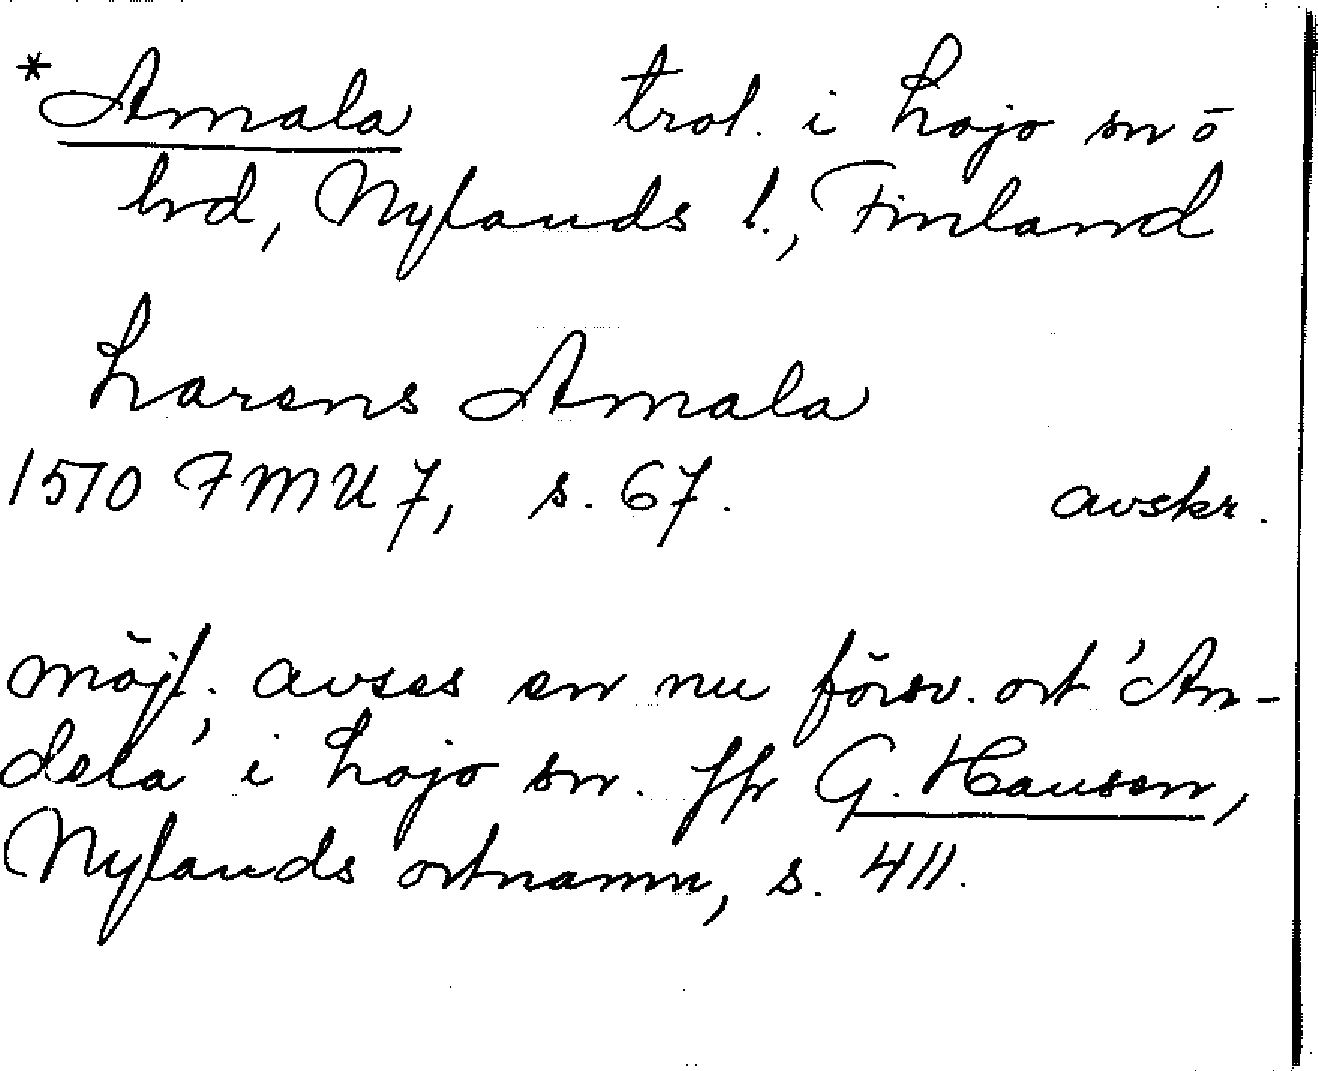 *Amala trol. i Lojo sn o
hd, Nylands l., Finland
Larens Amala
1510 FMU 7, s. 67. avskr.
möjl. avses en nu försv. ort 'An-
dela' i Lojo sn. Jfr G. Hausen,
Nylands ortnamn, s. 411.